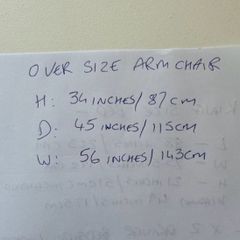 OVER SIZE ARM CHAIR
H: 34 INCHES/87 CM
D: 45 INCHES/115CM
W: 56 INCHES/143CM